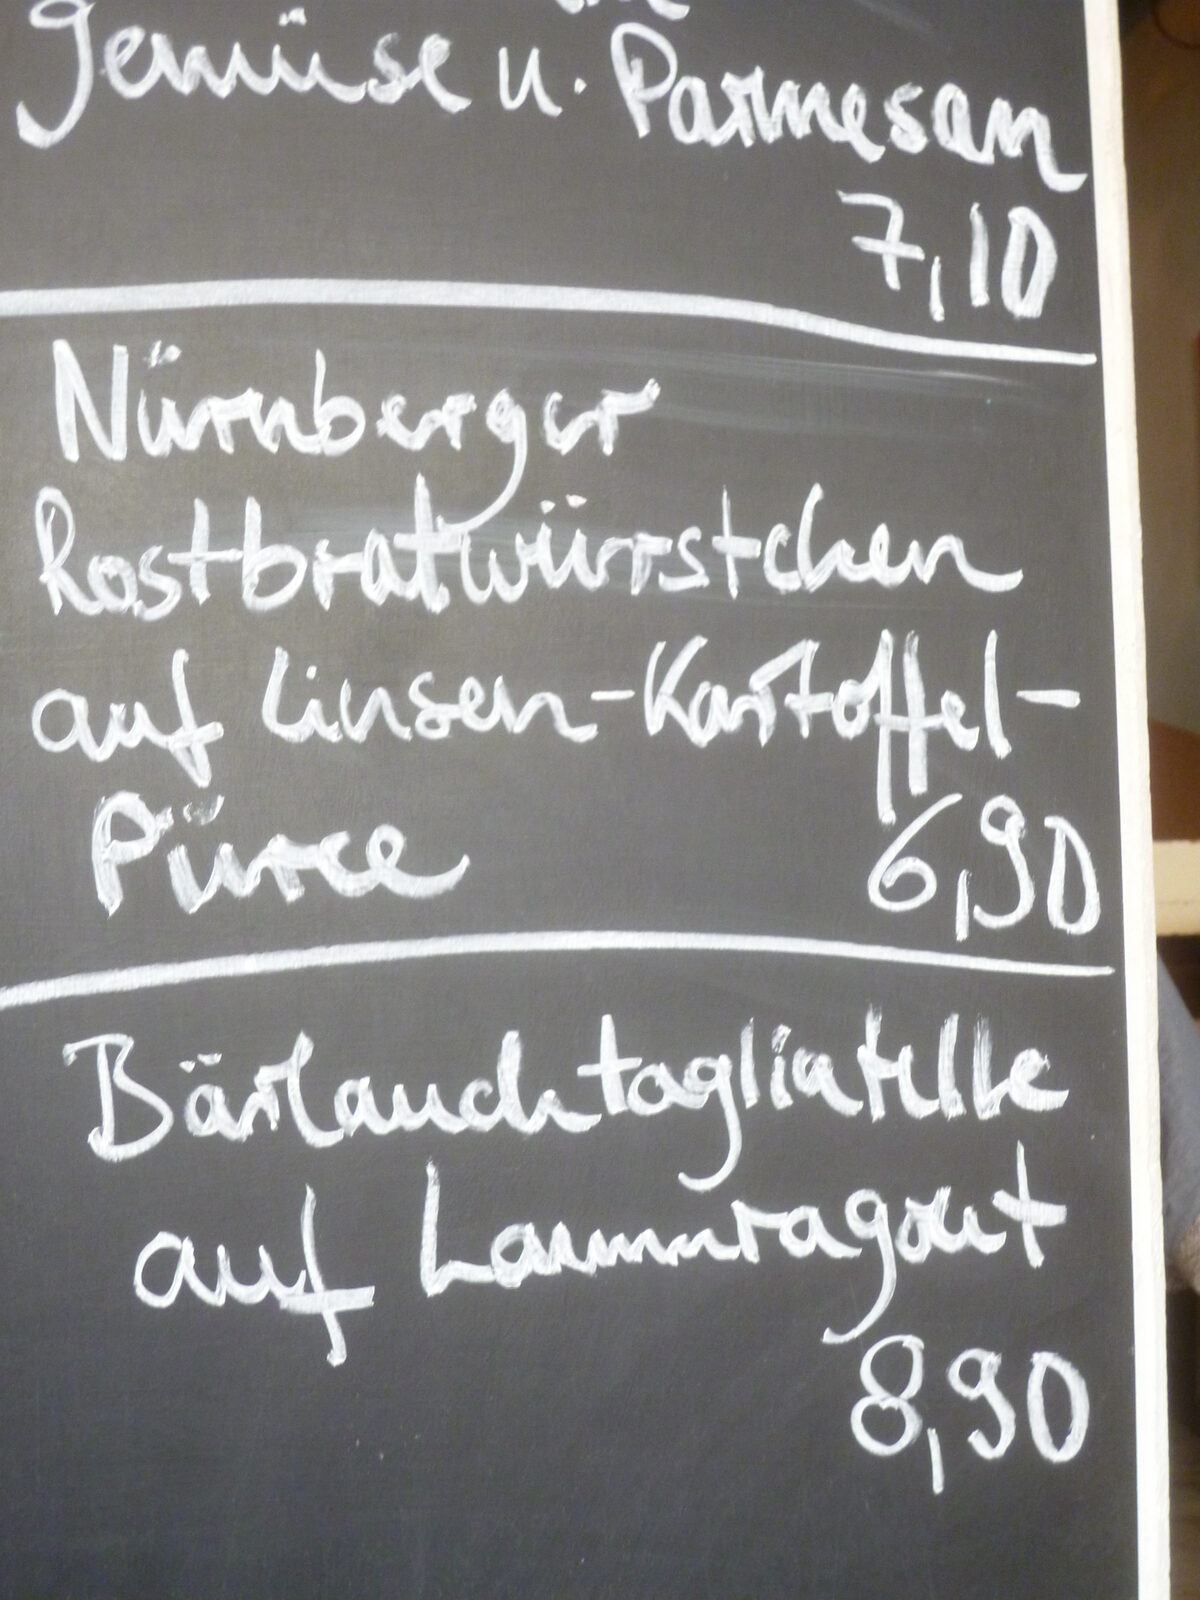 Gemüse u. Parmesan
7,10
Nürnberger
Rostbratwürstchen
auf Linsen-Kartoffel-
Püree 6,90
Bärlauchtagliatelle
auf Lammragout
8,90